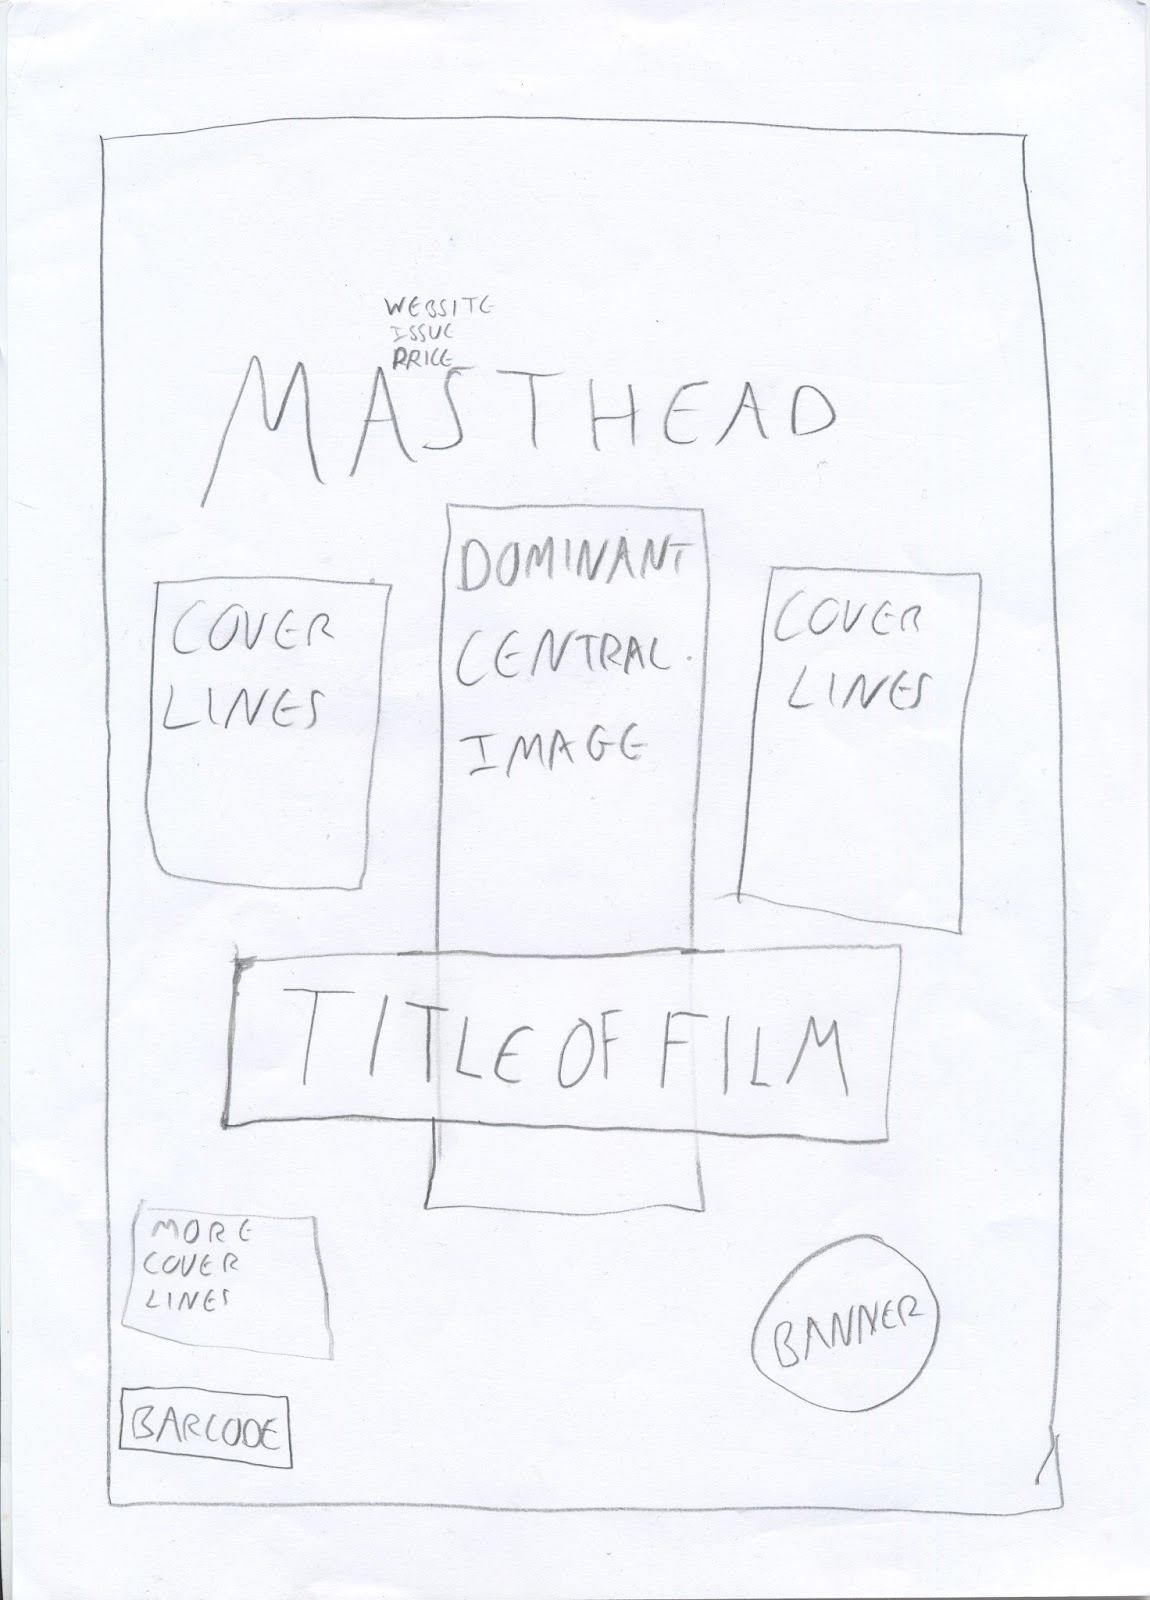 WEBSITE
ISSUE
PRICE
MASTHEAD
COVER
LINES
DOMINANT
CENTRAL.
IMAGE
COVER
LINES
TITLE OF FILM
MORE
COVER
LINES
BANNER
BARCODE